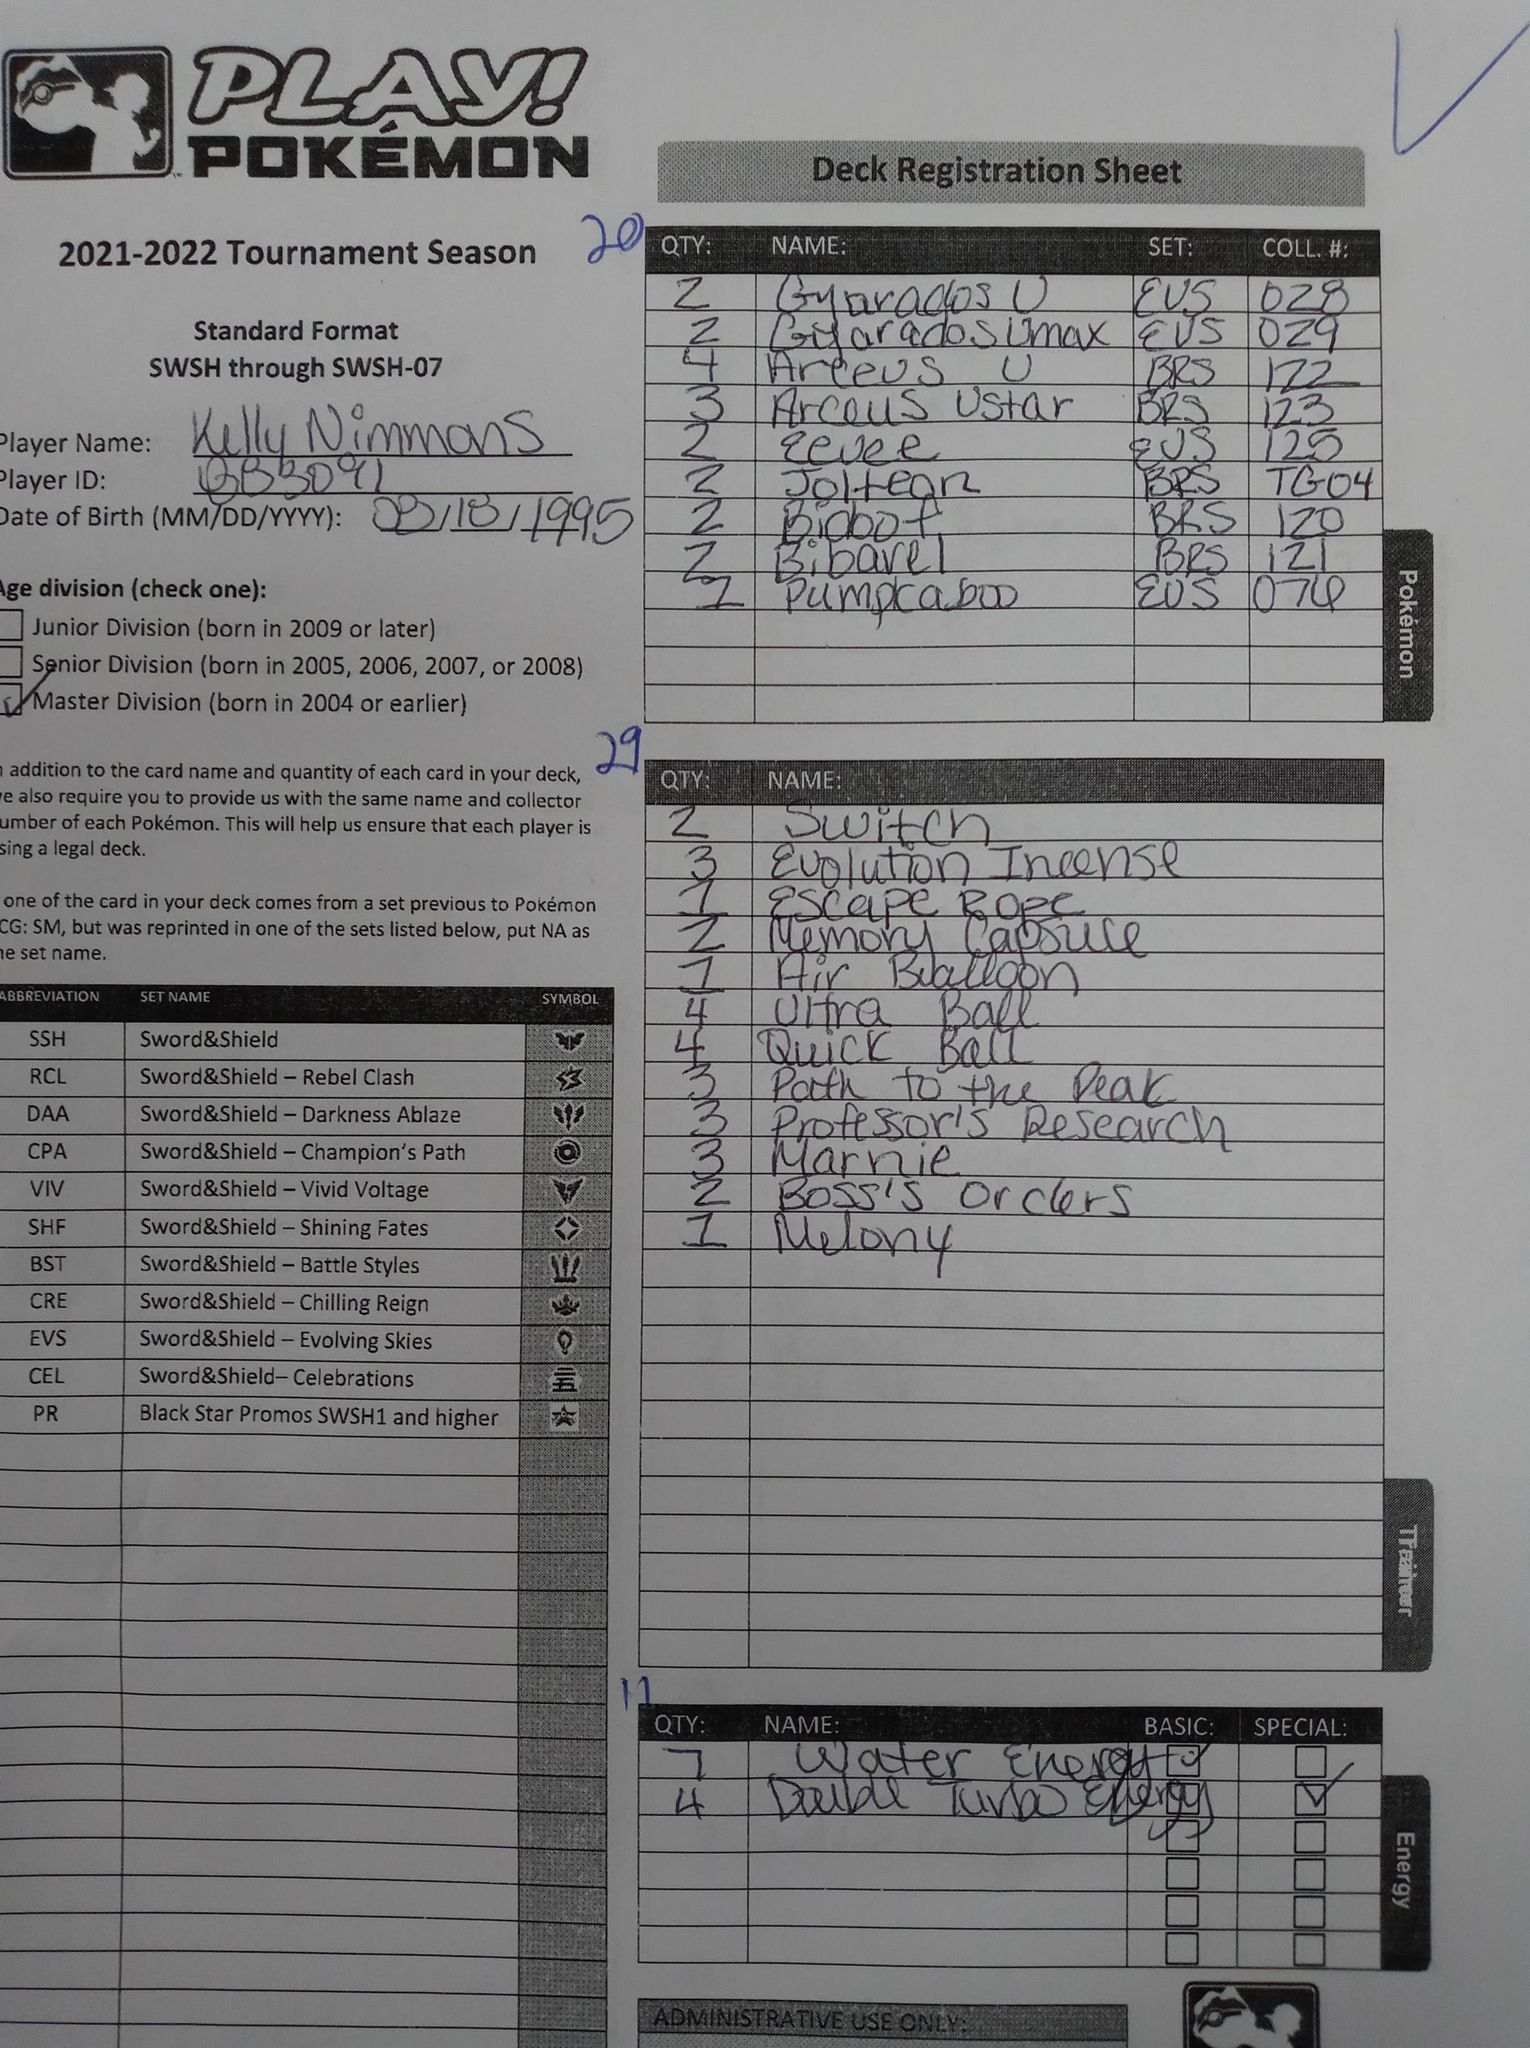 PLAY!
POKÉMON
Deck Registration Sheet
2021-2022 Tournament Season
Standard Format
SWSH through SWSH-07
Player Name: Kelly Nimmons
Player ID:
Date of Birth (MM/DD/YYYY): 08/18/1995
Age division (check one):
Junior Division (born in 2009 or later)
Senior Division (born in 2005, 2006, 2007, or 2008)
Master Division (born in 2004 or earlier)
addition to the card name and quantity of each card in your deck,
also require you to provide us with the same name and collector
of each Pokémon. This will help us ensure that each player is
a legal deck.
one of the card in your deck comes from a set previous to Pokémon
SM, but was reprinted in one of the sets listed below, put NA as
set name.
ABBREVIATION SET NAME SYMBOL
SSH Sword&Shield
RCL Sword&Shield – Rebel Clash
DAA Sword&Shield – Darkness Ablaze
CPA Sword&Shield – Champion's Path
VIV Sword&Shield – Vivid Voltage
SHF Sword&Shield – Shining Fates
BST Sword&Shield – Battle Styles
CRE Sword&Shield – Chilling Reign
EVS Sword&Shield – Evolving Skies
CEL Sword&Shield– Celebrations
PR Black Star Promos SWSH1 and higher
20
QTY: NAME: SET: COLL. #:
2 Gyarados V EVS 028
2 Gyarados Vmax EVS 029
4 Arceus V BRS 122
3 Arceus Vstar BRS 123
2 Eevee EVS 125
2 Jolteon BRS TG04
2 BRS 120
2 Bibarel BRS 121
1 Pumpkaboo EVS 076
Pokémon
29
QTY: NAME:
2 Switch
3 Evolution Incense
1 Escape Rope
2 Memory Capsule
1 Air Balloon
4 Ultra Ball
4 Quick Ball
3 Path to the Peak
3 Professor's Research
3 Marnie
2 Boss's Orders
1 Melony
Trainer
11
QTY: NAME: BASIC: SPECIAL:
7 Water Energy
4 Double Turbo Energy
Energy
ADMINISTRATIVE USE ONLY: